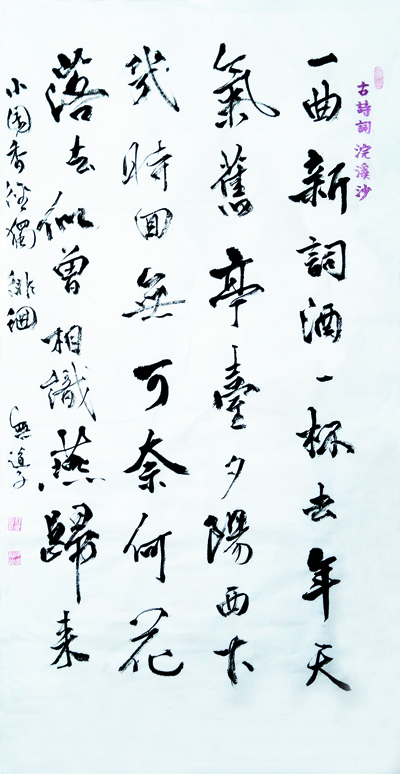 古詩詞 浣溪沙
一曲新詞酒一杯去年天
氣舊亭臺夕陽西下
幾時回無可奈何花
落去似曾相識燕歸来
小園香徑獨徘徊
無道子